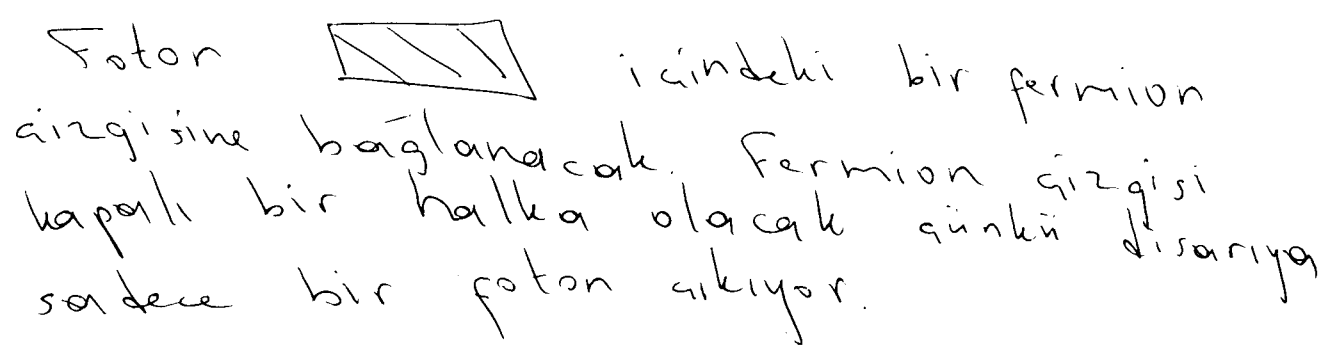 Foton içindeki bir fermion
çizgisine bağlanacak. Fermion çizgisi
kapalı bir halka olacak çünkü dışarıya
sadece bir foton çıkıyor.